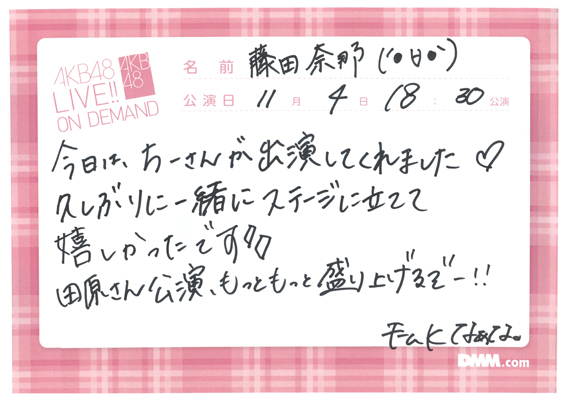 AKB48
LIVE!!
ON DEMAND
AKB
48
名前 藤田奈那 ('●日●`)
公演日 11月4日 18:30公演
今日は、ちーさんが出演してくれました♡
久しぶりに一緒にステージに立てて
嬉しかったです
田原さん公演、もっともっと盛り上げるぞー!!
チームK なぁな。
DMM.com